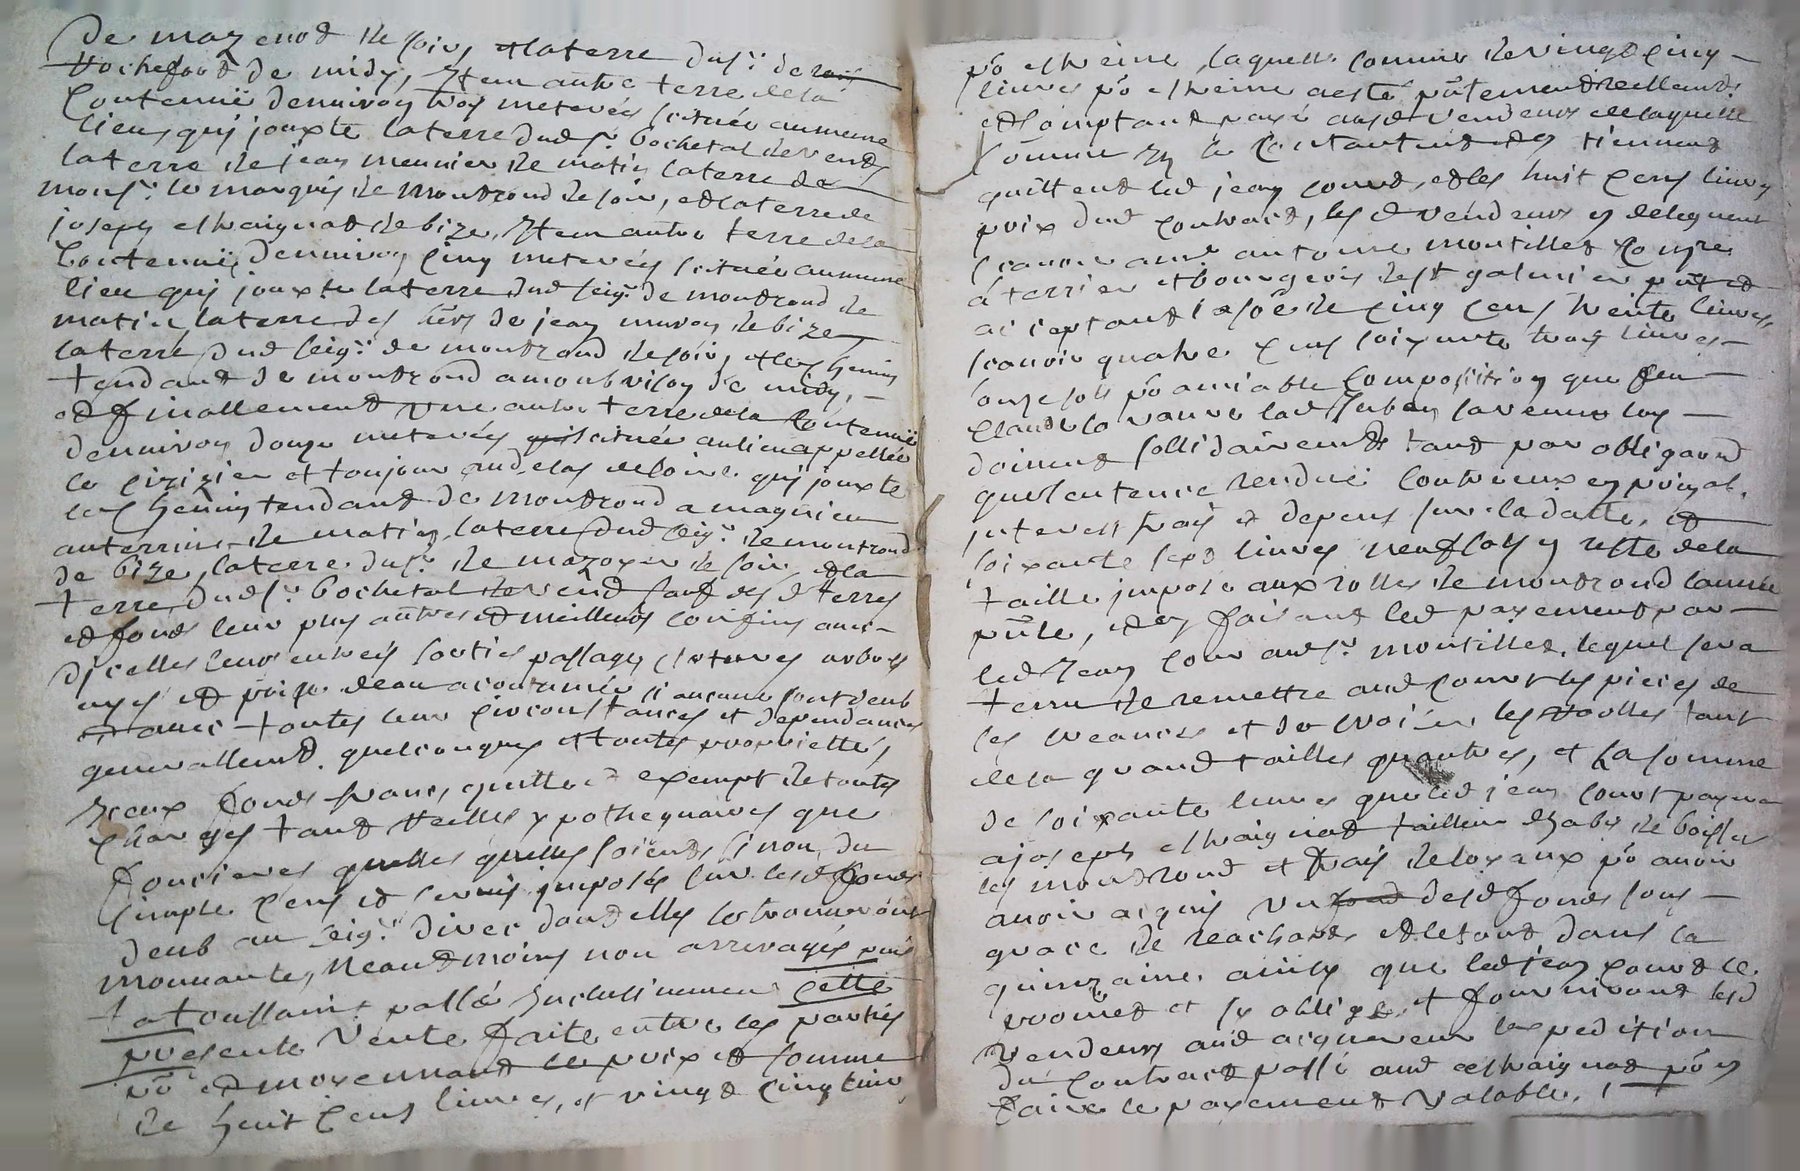 de mazenod de soir, et la terre du sr de
Rocheford de midy, Item autre terre de la
Contenuë denviron trois meterées scituée au meme
lieu quj jouxte la terre dud sr Bochetal de vend
la terre de jean meunier de matin la terre de
monsr le marquis de Montrond de soir, et la terre de
joseph estraignat de bize, Item autre terre de la
Contenuë denviron cinq meterées scituée au meme
lieu quj jouxte la terre dud seigr de montrond de
matin, la terre des hers de jean de bize
la terre dud seigr de montrond de soir, et les chemin
tendant de montrond a montbrison de midy,
et finallement une autre terre de la Contenuë
denviron douze meterées scituée au lieu appellée
le et toujour audelas de loire quj jouxte
les chemin tendant de Montrond a magnieu
de matin, la terre dud seigr de montrond
de bize, la terre du sr de mazoyer de soir, et la
terre dud sr Bochetal de vend sauf desd terres
et fonds leur plus autres et meilleurs confins avec
djcelles leurs entrées sorties passages arbres
et prise deau acoutumée si aucune sont deub
avec toutes leur circonstances et dependances
generallemt quelconques et toutes proprietté,
Iceux fonds francs, quitte et exempt de toutes
charges tant vieilles ypothequaires que
foncieres quelles quelles soient, sinon du
simple cens et servis imposés sur lesd fonds
deub au seigr direc dont elles se trouveront
mouvante, Neantmoins non arreragés puis
la toussaint passée Inclusivement cette
presente Vente faite entre les parties
po et moyennant le prix et somme
de huit cens livres, et vingt cinq livr
po estreine, laquelle somme de vingt cinq
livres po estreine a esté pntement reellemt
et comptant payé ausd vendeurs de laquelle
somme Ils se contentent et en tiennent
quittent led jean court, et les huit cens livres
prix dud contract, lesd vendeurs en deleguent
scavoir a mr antoine montillet
a terrier et bourgeois de st galmier pnt et
acceptant la soe de cinq cens trente livres,
scavoir quatre cens soixante trois livres
onze sols po amiable composition que feu
Claude
doivent sollidairement tant par obligaond
que sentence rendue contre eux en prinpal.
interest frais et depens sur la datte, et
soixante sept livres neuf sols en reste de la
taille jmposé aux rolles de montrond lannée
pnte, et en faisant led payement par
led Jean Cour aud sr montillet, lequel sera
tenu de remettre aud court les pieces de
ses creances et de les rolles tant
de la grand tailles qu'autres, et La somme
de soixante livres que led jean court payera
a joseph estraignat tailleur dhabs de boisset
les mondrond et frais de loyaux po avoir
avoir aquis un desd fonds sous
grace de reachapt, et le tout dans la
quinzaine, ainsy que led jean court le
promet et sy oblige, et fourniront lesd
vendeurs aud acquereur lexpedition
du contract passé aud estraignat po en
faire le payement Valable,